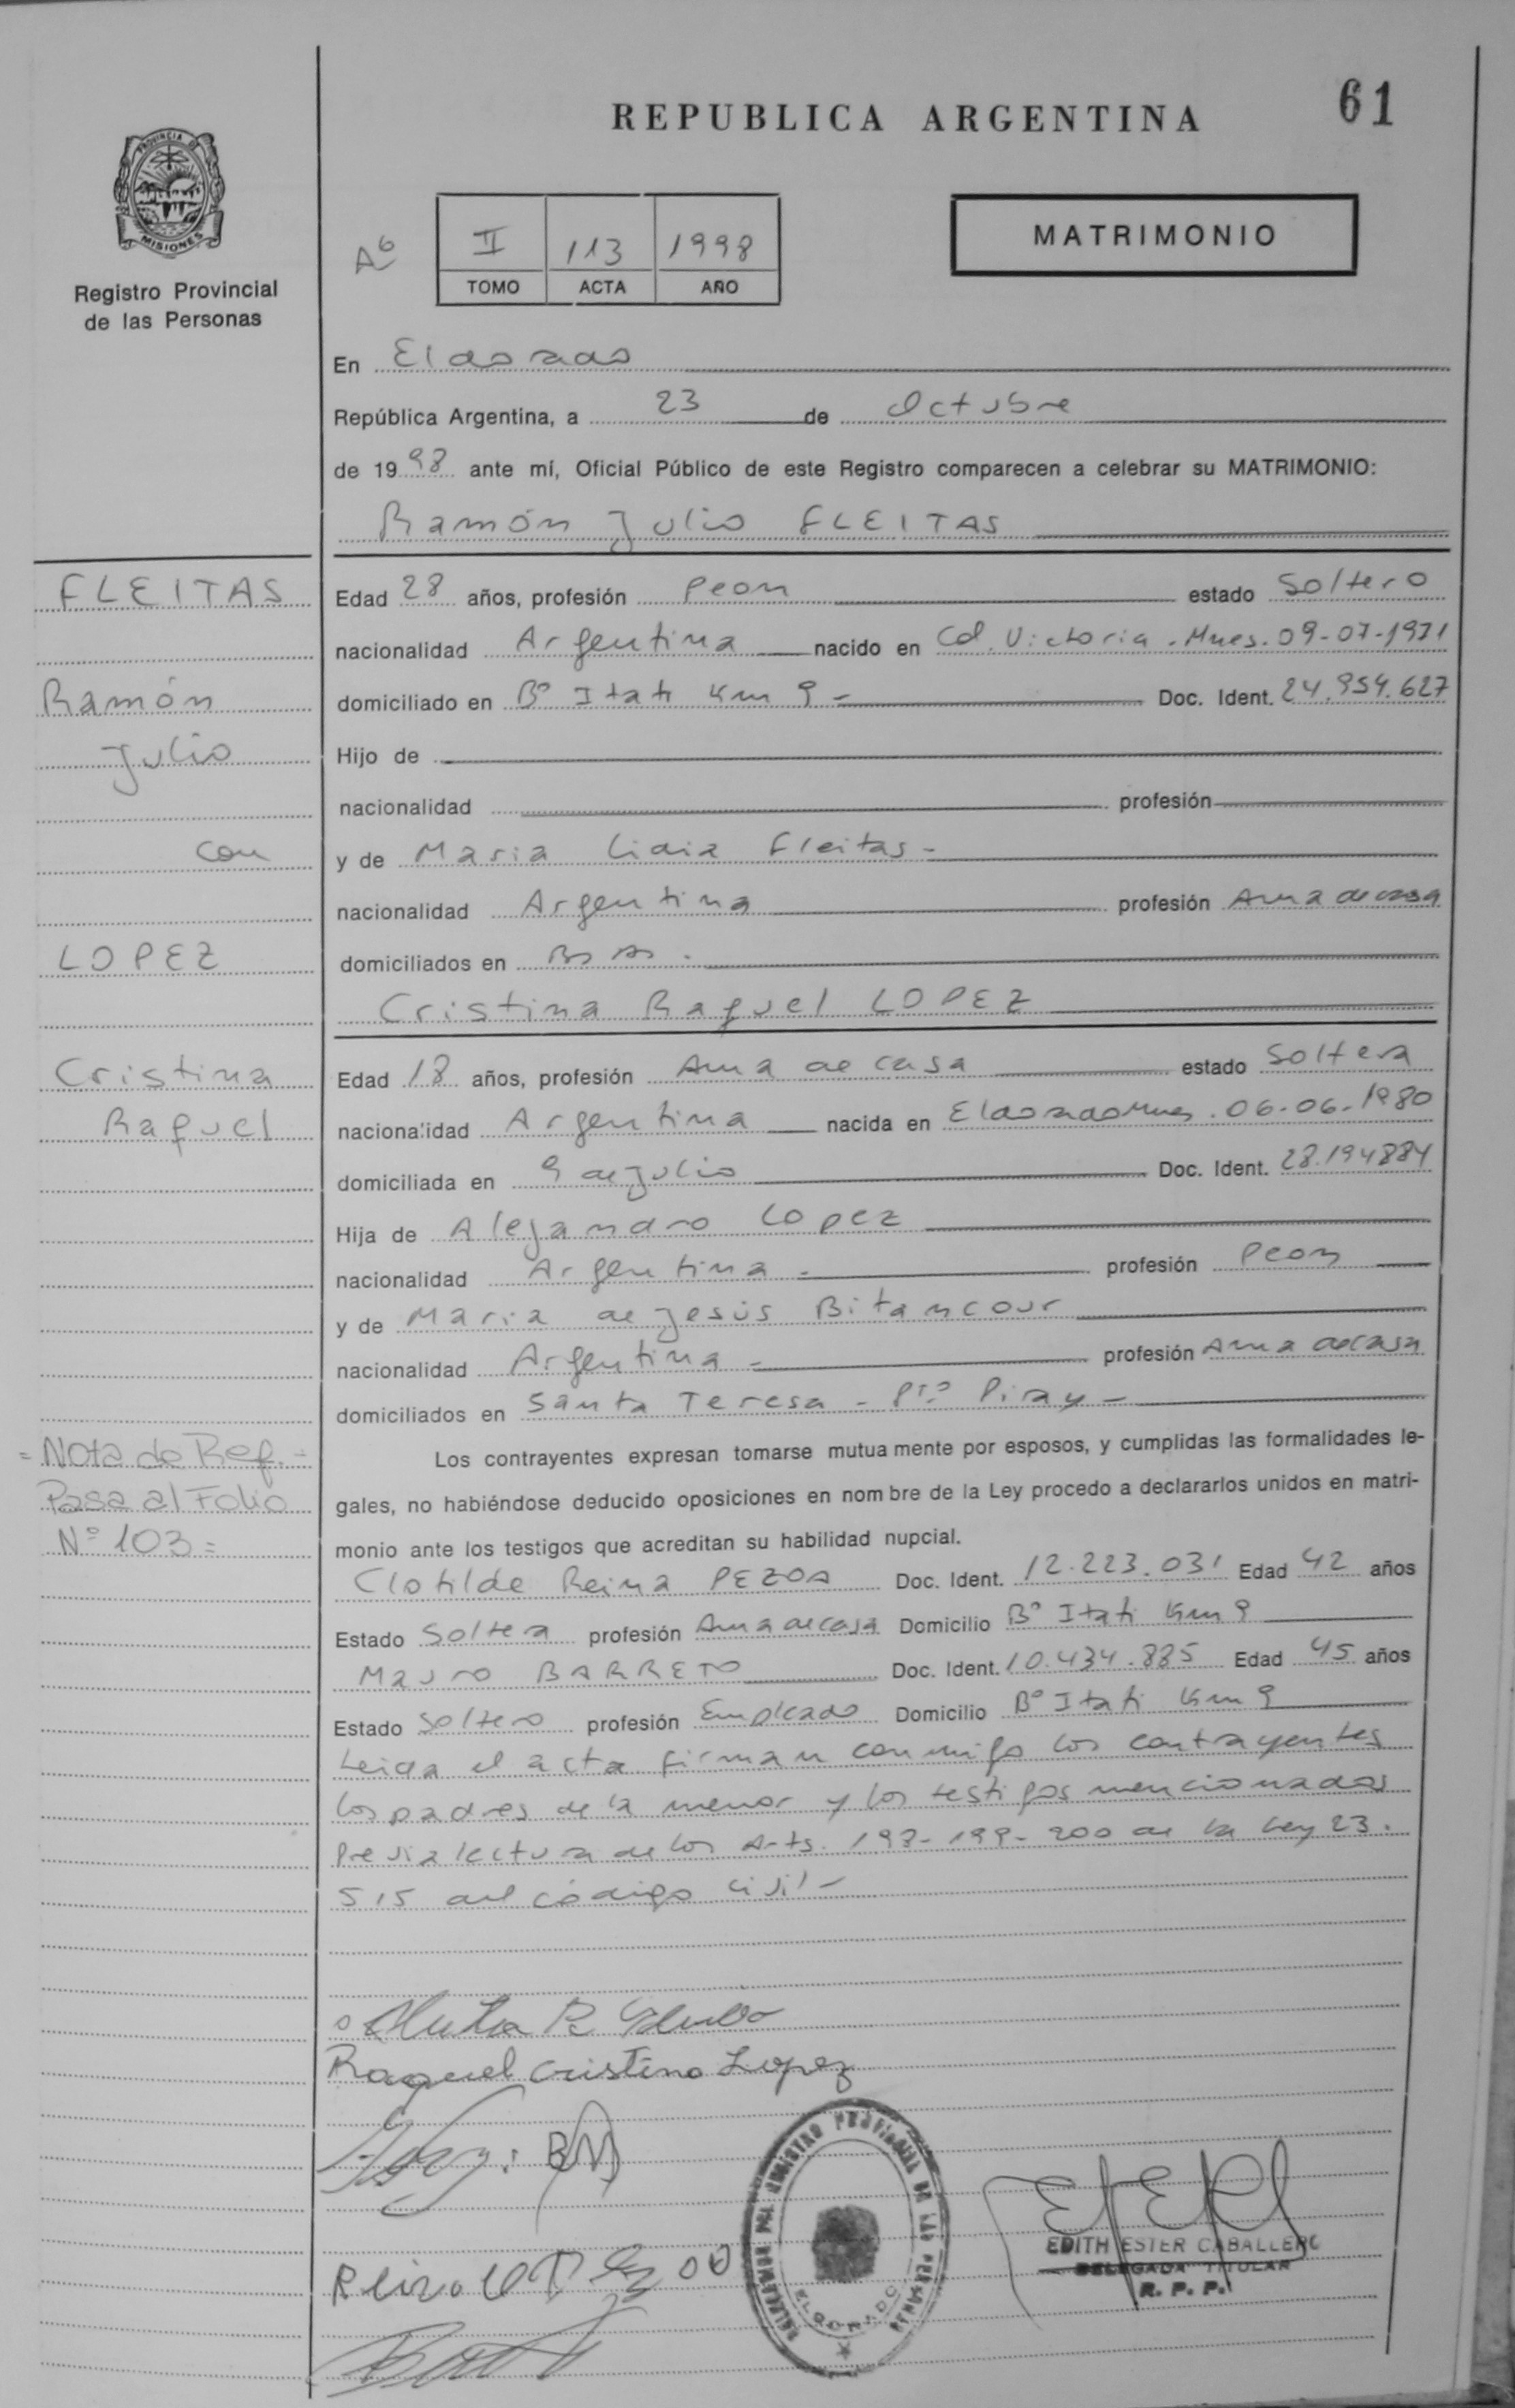 REPUBLICA ARGENTINA
61
PROVINCIA DE
MISIONES
Registro Provincial
de las Personas
II 113 1998
TOMO ACTA AÑO
MATRIMONIO
En Eldorado
República Argentina, a 23 de Octubre
de 1998 ante mí, Oficial Público de este Registro comparecen a celebrar su MATRIMONIO:
Ramón Julio FLEITAS
FLEITAS
Ramón
Julio
con
LOPEZ
Cristina
Raquel
Edad 28 años, profesión Peon estado Soltero
nacionalidad Argentina nacido en Col. Victoria - Mnes. 09-07-1971
domiciliado en B° Itati Km 9 - Doc. Ident. 24.954.627
Hijo de
nacionalidad profesión
y de Maria Lidia Fleitas -
nacionalidad Argentina profesión Ama de casa
domiciliados en Bs As .
Cristina Raquel LOPEZ
Edad 18 años, profesión Ama de casa estado Soltera
nacionalidad Argentina nacida en Eldorado Mnes. 06-06-1980
domiciliada en 9 de Julio Doc. Ident. 28.194884
Hija de Alejandro Lopez
nacionalidad Argentina - profesión Peon
y de Maria de Jesús Bitancour
nacionalidad Argentina - profesión Ama de casa
domiciliados en Santa Teresa - Pto Piray -
= Nota de Ref. =
Pasa al Folio
N° 103 =
Los contrayentes expresan tomarse mutuamente por esposos, y cumplidas las formalidades le-
gales, no habiéndose deducido oposiciones en nombre de la Ley procedo a declararlos unidos en matri-
monio ante los testigos que acreditan su habilidad nupcial.
Clotilde Reina PEZOA Doc. Ident. 12.223.031 Edad 42 años
Estado Soltera profesión Ama de casa Domicilio B° Itati Km 9
Mauro BARRETO Doc. Ident. 10.434.885 Edad 45 años
Estado Soltero profesión Empleado Domicilio B° Itati Km 9
Leida el acta firman conmigo los contrayentes
los padres de la menor y los testigos mencionados
Previa lectura de los Arts. 198-199-200 de la Ley 23.
515 del código civil -
Raquel Cristina Lopez
REGISTRO PROVINCIAL DE LAS PERSONAS
ELDORADO
EDITH ESTER CABALLERO
DELEGADA TITULAR
R. P. P.